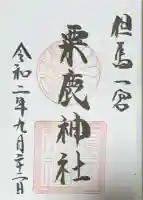 但馬一宮
粟鹿神社
令和二年九月二十二日